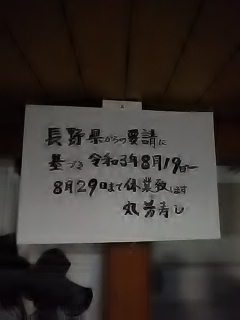 長野県からの要請に
基づき 令和3年8月19日〜
8月29日まで休業致します
丸芳寿し